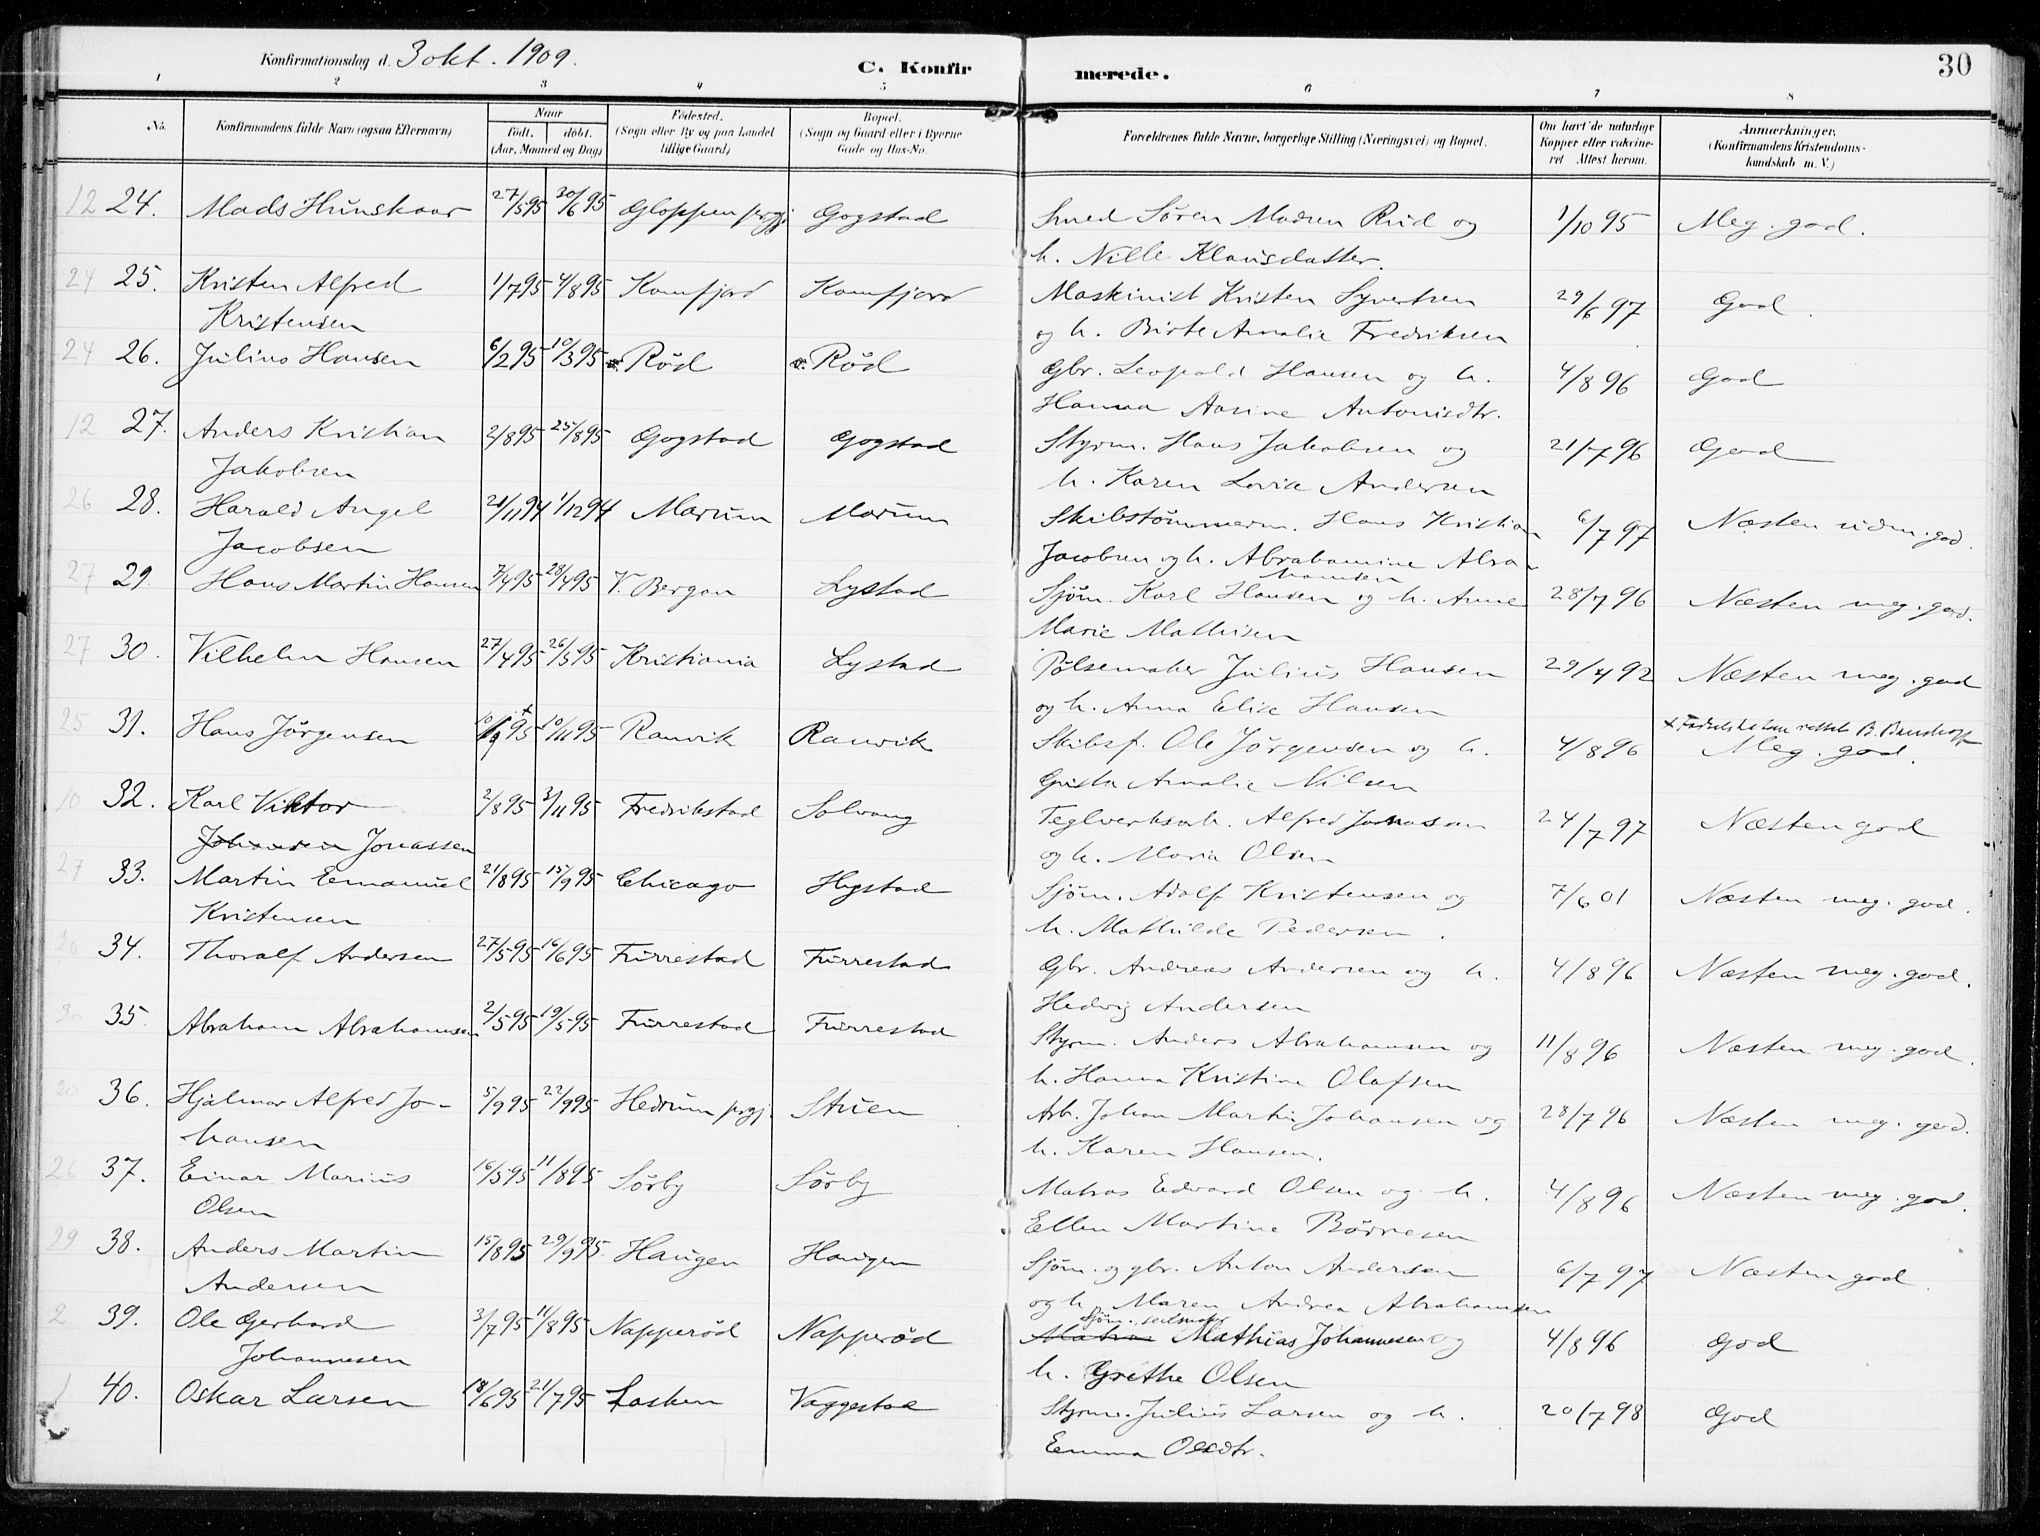 Konfirmationsdag d. 3 okt. 1909.
C. Konfirmerede.
30
1 2 3 4 5 6 7 8
No.
Konfirmandens fulde Navn (ogsaa Efternavn)
Naar
født. døbt.
(Aar, Maaned og Dag)
Fødested.
(Sogn eller By og paa Landet
tillige Gaard)
Bopæl.
(Sogn og Gaard eller i Byerne
Gade og Hus-No.
Forældrenes fulde Navne, borgerlige Stilling (Næringsvei) og Bopæl.
Om havt de naturlige
Kopper eller vakcine-
ret Attest herom.
Anmærkninger.
(Konfirmandens Kristendoms-
kundskab m. V.)
12 24. Mads Hunskaar 27/5 95 30/6 95 Gloppen prgj. Gogstad Smed Søren Madsen Rud og 1/10 95 Meg. god.
h. Nille Klausdatter.
24 25. Kristen Alfred 1/7 95 4/8 95 Kamfjord Kamfjord Maskinist Kristen Syvertsen 29/6 97 God.
Kristensen og h. Birte Amalie Fredriksen
24 26. Julius Hansen 6/2 95 10/3 95 Rød Rød Gbr. Leopold Hansen og h. 4/8 96 God
Hanna Aasine Antonisdtr.
12 27. Anders Kristian 2/8 95 25/8 95 Gogstad Gogstad Styrm. Hans Jakobsen og 21/7 96 God
Jakobsen h. Karen Lovise Andersen
26 28. Harald Angel 21/11 94 1/12 94 Marum Marum Skibstømmerm. Hans Kristian 6/7 97 Næsten udm. god.
Jacobsen Jacobsen og h. Abrahamine Abra-
hamsen
27 29. Hans Martin Hansen 7/4 95 28/4 95 V. Bergan Lystad Sjøm. Karl Hansen og h. Anne 28/7 96 Næsten meg. god.
Marie Mathisen
27 30. Vilhelm Hansen 27/4 95 26/5 95 Kristiania Lystad Pølsemaker Julius Hansen 29/4 92 Næsten meg. god
og h. Anna Elise Hansen
25 31. Hans Jørgensen 10/9 95 x 10/11 95 Ranvik Ranvik Skibsf. Ole Jørgensen og h. 4/8 96 x Fødselsdatum rettet Meg. god.
Amalie Nilsen
10 32. Karl Viktor 2/8 95 3/11 95 Fredrikstad Solvang Teglverksarb. Alfred Jonassen 24/7 97 Næsten god
Johansen Jonassen og h. Maria Olsen
27 33. Martin Emanuel 21/8 95 15/9 95 Chicago Hystad Sjøm. Adolf Kristensen og 7/6 01 Næsten meg. god.
Kristensen h. Mathilde Pedersen.
30 34. Thoralf Andersen 27/5 95 16/6 95 Furrestad Furrestad Gbr. Andreas Andersen og h. 4/8 96 Næsten meg. god.
Hedvig Andersen
30 35. Abraham Abrahamsen 2/5 95 19/5 95 Furrestad Furrestad Styrm. Anders Abrahamsen og 11/8 96 Næsten meg. god.
h. Hanna Kristine Olafsen
30 36. Hjalmar Alfred Jo- 5/9 95 22/9 95 Hedrum prgj. Stuen Arb. Johan Martin Johansen og 28/7 96 Næsten meg. god.
hansen h. Karen Hansen.
26 37. Einar Marius 16/5 95 11/8 95 Sørby Sørby Matros Edvard Olsen og h. 4/8 96 Næsten meg. god.
Olsen Ellen Martine Børresen
29 38. Anders Martin 15/8 95 29/9 95 Haugen Haugen Sjøm. og gbr. Anton Andersen 6/7 97 Næsten god.
Andersen og h. Maren Andrea Abrahamsen
2 39. Ole Gerhard 3/7 95 11/8 95 Napperød Napperød Sjøm., seilmager Matros Mathias Johannesen og 4/8 96 God
Johannesen h. Grethe Olsen
1 40. Oskar Larsen 18/6 95 21/7 95 Lasken Vaggestad Styrm. Julius Larsen og h. 20/7 98 God
Emma Olsdtr.